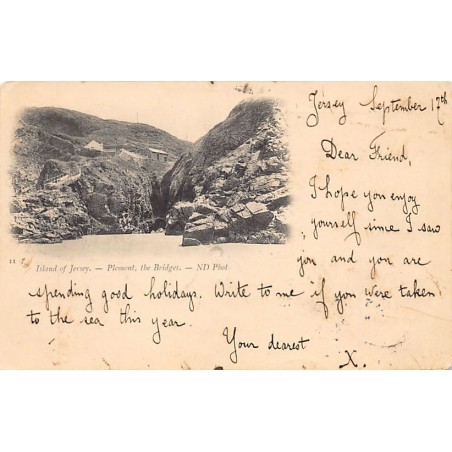 Jersey September 17th
Dear Friend,
I hope you enjoy
yourself since I saw
you and you are
11 Island of Jersey. — Plemont, the Bridges. — ND Phot
spending good holidays. Write to me if you were taken
to the sea this year.
Your dearest
X.